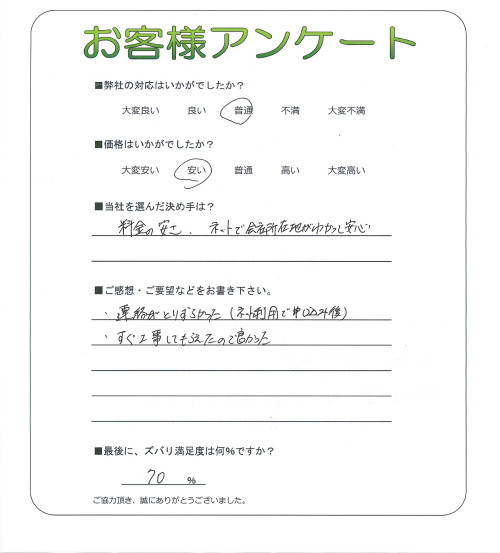 お客様アンケート
■弊社の対応はいかがでしたか?
大変良い 良い 普通 不満 大変不満
■価格はいかがでしたか?
大変安い 安い 普通 高い 大変高い
■当社を選んだ決め手は?
料金の安さ、ネットで会社所在地がわかって安心
■ご感想・ご要望などをお書き下さい。
・連絡がとりずらかった(ネット利用で申し込み後)
・すぐ工事してもらえたので良かった
■最後に、ズバリ満足度は何%ですか?
70 %
ご協力頂き、誠にありがとうございました。